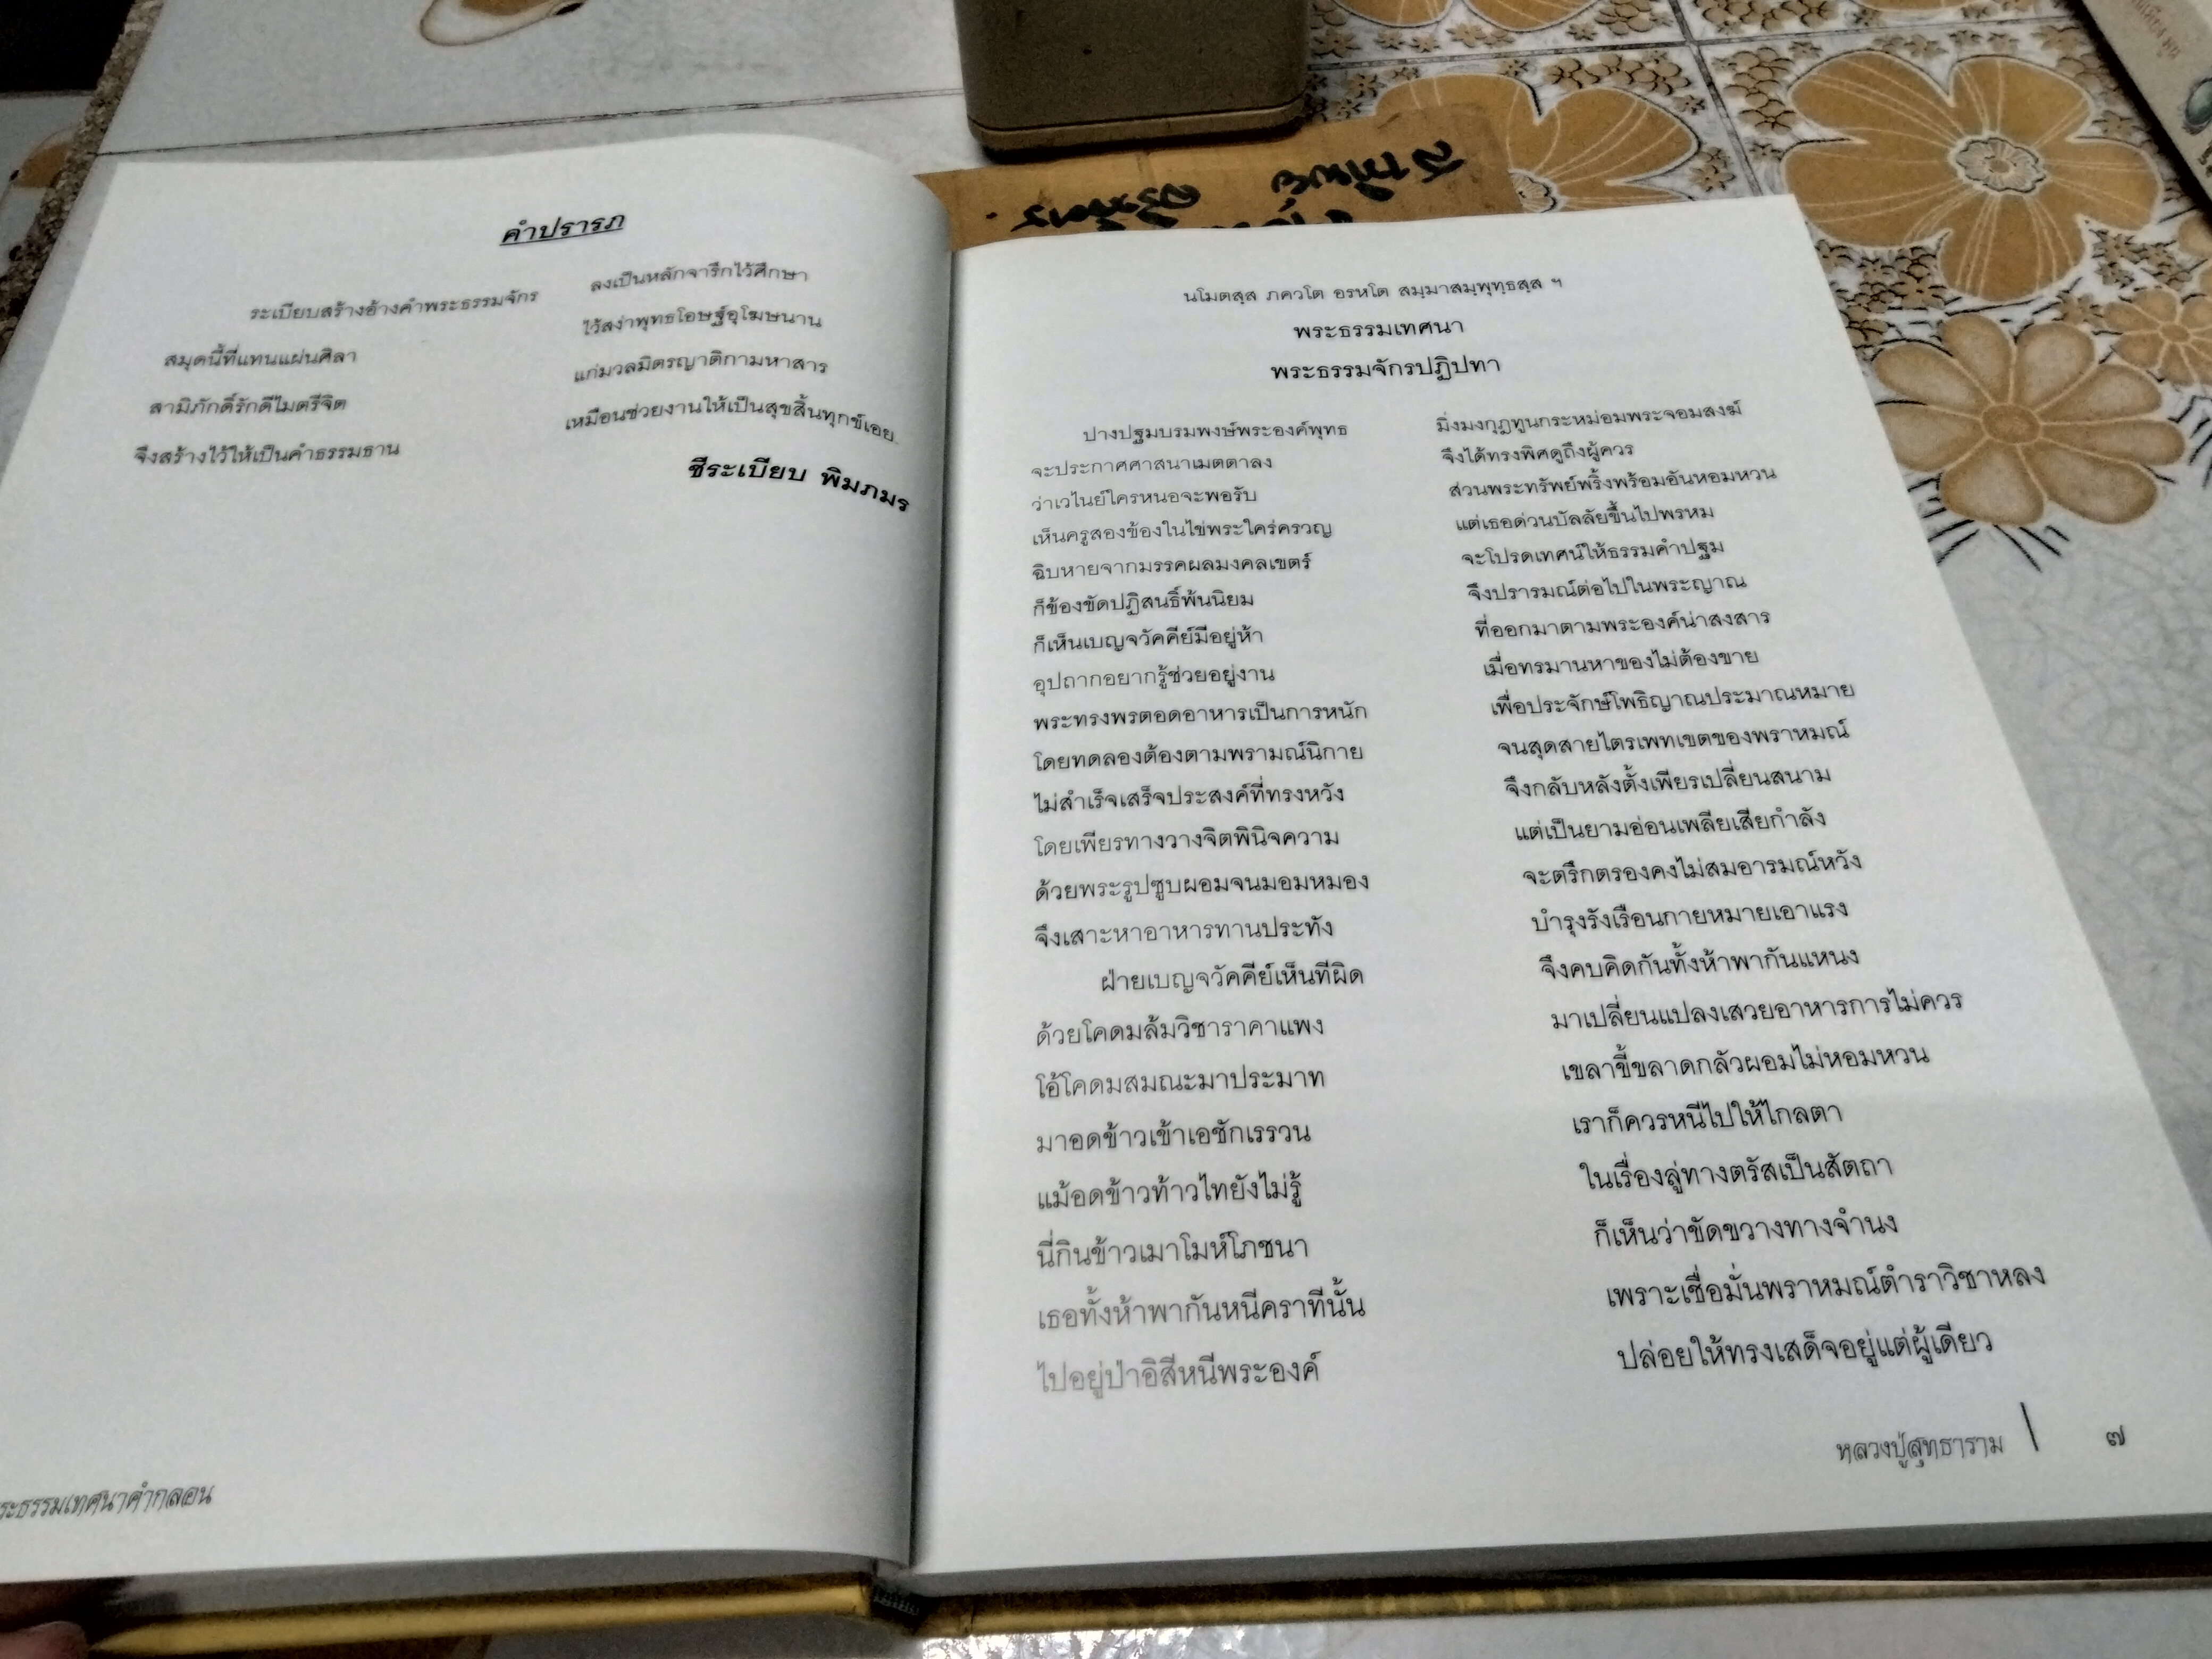 คำปรารภ
ระเบียบสร้างอ้างคำพระธรรมจักร ลงเป็นหลักจารึกไว้ศึกษา
สมุดนี้ที่แทนแผ่นศิลา ไว้สง่าพุทธโอษฐ์อุโฆษนาน
สามิภักดิ์รักดีไมตรีจิต แก่มวลมิตรญาติกามหาสาร
จึงสร้างไว้ให้เป็นคำธรรมธาน เหมือนช่วยงานให้เป็นสุขสิ้นทุกข์เอย
ชีระเบียบ พิมภมร
ระธรรมเทศนาคำกลอน
นโมตสฺส ภควโต อรหโต สมฺมาสมฺพุทฺธสฺส ฯ
พระธรรมเทศนา
พระธรรมจักรปฏิปทา
ปางปฐมบรมพงษ์พระองค์พุทธ มิ่งมงกุฎทูนกระหม่อมพระจอมสงฆ์
จะประกาศศาสนาเมตตาลง จึงได้ทรงพิศดูถึงผู้ควร
ว่าเวไนย์ใครหนอจะพอรับ ส่วนพระทรัพย์พริ้งพร้อมอันหอมหวน
เห็นครูสองข้องในไข่พระใคร่ครวญ แต่เธอด่วนบัลลัยขึ้นไปพรหม
ฉิบหายจากมรรคผลมงคลเขตร์ จะโปรดเทศน์ให้ธรรมคำปฐม
ก็ข้องขัดปฏิสนธิ์พ้นนิยม จึงปรารมณ์ต่อไปในพระญาณ
ก็เห็นเบญจวัคคีย์มีอยู่ห้า ที่ออกมาตามพระองค์น่าสงสาร
อุปถากอยากรู้ช่วยอยู่งาน เมื่อทรมานหาของไม่ต้องขาย
พระทรงพรตอดอาหารเป็นการหนัก เพื่อประจักษ์โพธิญาณประมาณหมาย
โดยทดลองต้องตามพรามณ์นิกาย จนสุดสายไตรเพทเขตของพราหมณ์
ไม่สำเร็จเสร็จประสงค์ที่ทรงหวัง จึงกลับหลังตั้งเพียรเปลี่ยนสนาม
โดยเพียรทางวางจิตพินิจความ แต่เป็นยามอ่อนเพลียเสียกำลัง
ด้วยพระรูปซูบผอมจนมอมหมอง จะตรึกตรองคงไม่สมอารมณ์หวัง
จึงเสาะหาอาหารทานประทัง บำรุงรังเรือนกายหมายเอาแรง
ฝ่ายเบญจวัคคีย์เห็นทีผิด จึงคบคิดกันทั้งห้าพากันแหนง
ด้วยโคดมล้มวิชาราคาแพง มาเปลี่ยนแปลงเสวยอาหารการไม่ควร
โอ้โคดมสมณะมาประมาท เขลาขี้ขลาดกลัวผอมไม่หอมหวน
มาอดข้าวเข้าเอชักเรรวน เราก็ควรหนีไปให้ไกลตา
แม้อดข้าวท้าวไทยังไม่รู้ ในเรื่องลู่ทางตรัสเป็นสัตถา
นี่กินข้าวเมาโมห์โภชนา ก็เห็นว่าขัดขวางทางจำนง
เธอทั้งห้าพากันหนีคราทีนั้น เพราะเชื่อมั่นพราหมณ์ตำราวิชาหลง
ไปอยู่ป่าอิสีหนีพระองค์ ปล่อยให้ทรงเสด็จอยู่แต่ผู้เดียว
หลวงปู่สุทธาราม | ๗